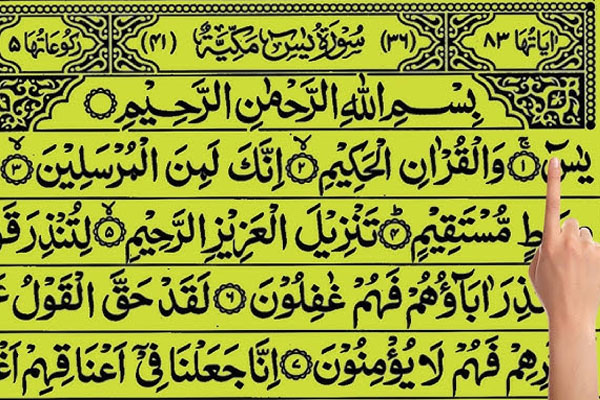 اٰيَاتُهَا ۸۳ (۳۶) سُوْرَةُ يٰسٓ مَكِّيَّةٌ (۴۱) رُكُوْعَاتُهَا ۵
بِسْمِ اللهِ الرَّحْمٰنِ الرَّحِيْمِ
يٰسٓ ۝۱ وَالْقُرْاٰنِ الْحَكِيْمِ ۝۲ اِنَّكَ لَمِنَ الْمُرْسَلِيْنَ ۝۳
مُّسْتَقِيْمٍ ۝۴ تَنْزِيْلَ الْعَزِيْزِ الرَّحِيْمِ ۝۵ لِتُنْذِرَ
اٰبَآؤُهُمْ فَهُمْ غٰفِلُوْنَ ۝۶ لَقَدْ حَقَّ الْقَوْلُ
فَهُمْ لَا يُؤْمِنُوْنَ ۝۷ اِنَّا جَعَلْنَا فِيْٓ اَعْنَاقِهِمْ